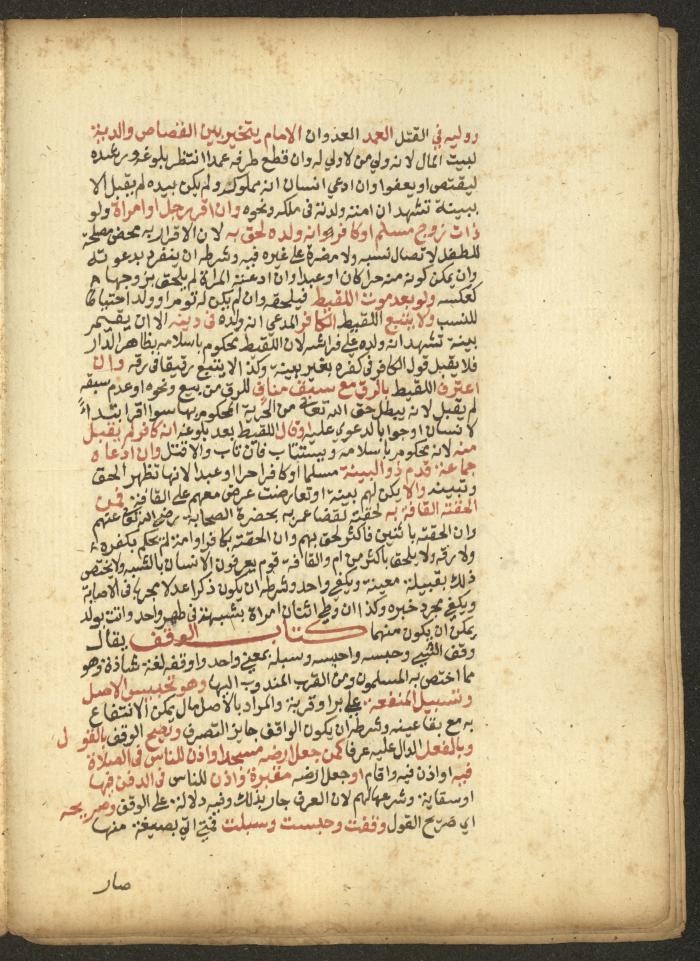 ووليه في القتل العمد العدوان الامام يتخير بين القصاص والدية
لبيت المال لانه ولي من لا ولي له وان قطع طرفه عمدا انتظر بلوغه ورشده
ليقتص او يعفوا وان ادعي انسان انه مملوكه ولم يكن بيده لم يقبل الا
ببينة تشهد ان امته ولدته في ملكه ونحوه وان اقر رجل او امراة ولو
ذات زوج مسلم او كافر انه ولده لحق به لان الاقرار به محض مصلحة
للطفل لاتصال نسبه ولا مضرة على غيره فيه وشرطه ان ينفرد بدعوته
وان يمكن كونه منه حرا كان او عبدا وان ادعته المراة لم يلحق بزوجها
كعكسه ولو بعد موت اللقيط فيلحقه وان لم يكن له توم او ولد احتياطا
للنسب ولا يتبع اللقيط الكافر المدعي انه ولده في دينه الا ان يقيم
بينة تشهد انه ولد على فراشه لان اللقيط محكوم باسلامه بظاهر الدار
فلا يقبل قول الكافر في كفره بغير بينة وكذا لا يتبع رقيقا في رقه وان
اعترف اللقيط بالرق مع سبق مناف للرق من بيع ونحوه او عدم سبقه
لم يقبل لانه يبطل حق الله تعالى من الحرية المحكوم بها سوا اقر ابتداء
لانسان او جوابا لدعوى عليه او قال اللقيط بعد بلوغه انه كافر لم يقبل
منه لانه محكوم باسلامه ويستتاب فان تاب والا قتل وان ادعاه
جماعة قدم ذو البينة مسلما او كافرا حرا او عبدا لانها تظهر الحق
وتبينه والا يكن لهم بينة او تعارضت عرض معهم على القافة فمن
الحقته القافة به لحقه لقضا عمر به بحضرة الصحابة رضي الله تعالى عنهم
وان الحقته باثنين فاكثر لحق بهم وان الحقته بكافر او امة لم يحكم بكفره
ولا رقه ولا يلحق باكثر من ام والقافة قوم يعرفون الانسان بالشبه ولا يختص
ذلك بقبيلة معينة ويكفي واحد وشرطه ان يكون ذكرا عدلا مجربا في الاصابة
ويكفي مجرد خبره وكذا ان وطي اثنان امراة بشبهة في طهر واحد واتت بولد
يمكن ان يكون منهما كتاب الوقف يقال
وقف الشي وحبسه واحبسه وسبله بمعني واحد واوقفه لغة شاذة وهو
مما اختص به المسلمون ومن القرب المندوب اليها وهو تحبيس الاصل
وتسبيل المنفعة على بر او قربة والمراد بالاصل مال يمكن الانتفاع
به مع بقا عينه وشرطه ان يكون الواقف جايز التصرف ويصح الوقف بالقول
وبالفعل الدال عليه عرفا كمن جعل ارضه مسجدا واذن للناس في الصلاة
فيه او اذن فيه واقام او جعل ارضه مقبرة واذن للناس في الدفن فيها
او سقاية وشرعها لهم لان العرف جار بذلك وفيه دلالة على الوقف وصريحه
اي صريح القول وقفت وحبست وسبلت فمتي اتي بصيغة منها
صار